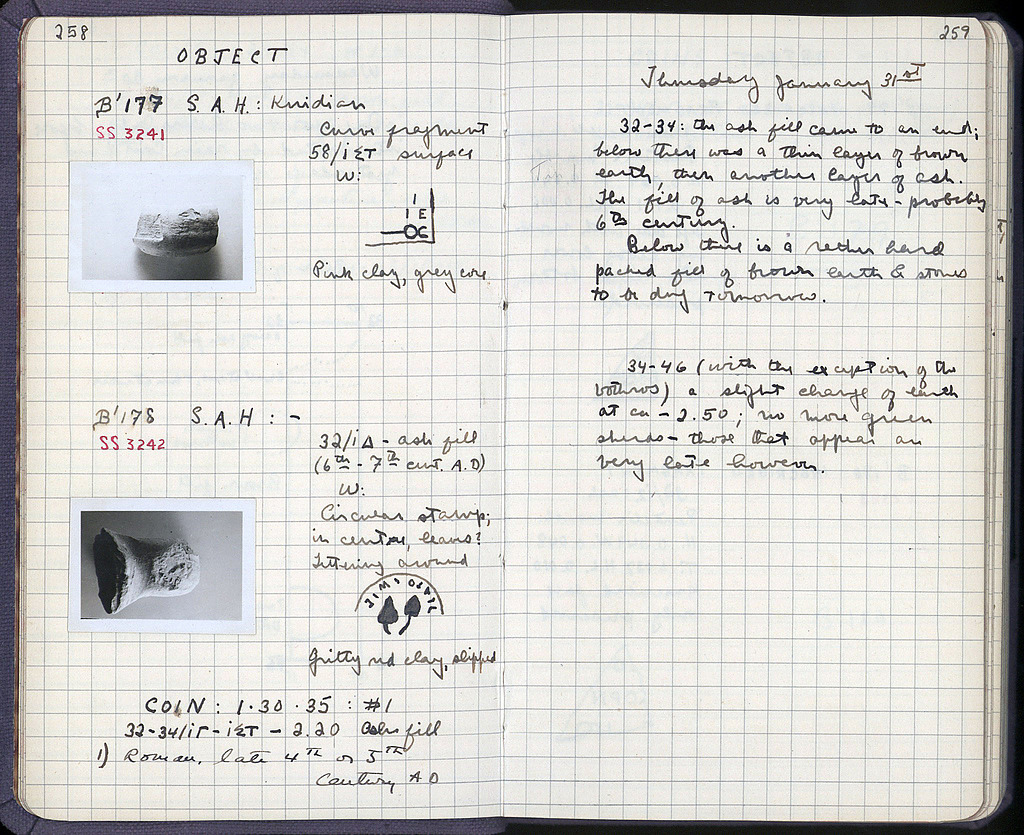 258
OBJECT
B'177 S. A. H.: Knidian
SS 3241
Curve fragment
58/ιΣΤ surface
W:
Ι
Ι Ε
ΟC
Pink clay, grey core
B'178 S. A. H : -
SS 3242
32/ιΔ - ash fill
(6th - 7th cent. A.D)
W:
Circular stamp;
in centre, leaves?
Lettering around
Gritty red clay, slipped
COIN : 1·30·35 : #1
32-34/ιΓ - ιΣΤ - 2.20 Ash fill
1) Roman, late 4TH or 5TH
Century A D
259
Thursday January 31st
32-34: the ash fill came to an end;
below there was a thin layer of brown
earth, then another layer of ash.
The fill of ash is very late - probably
6th century.
Below there is a rather hard
packed fill of brown earth & stones
to be dug tomorrow.
34-46 (with the exception of the
bothros) a slight change of earth
at ca - 2.50; no more green
sherds - those that appear are
very late however.